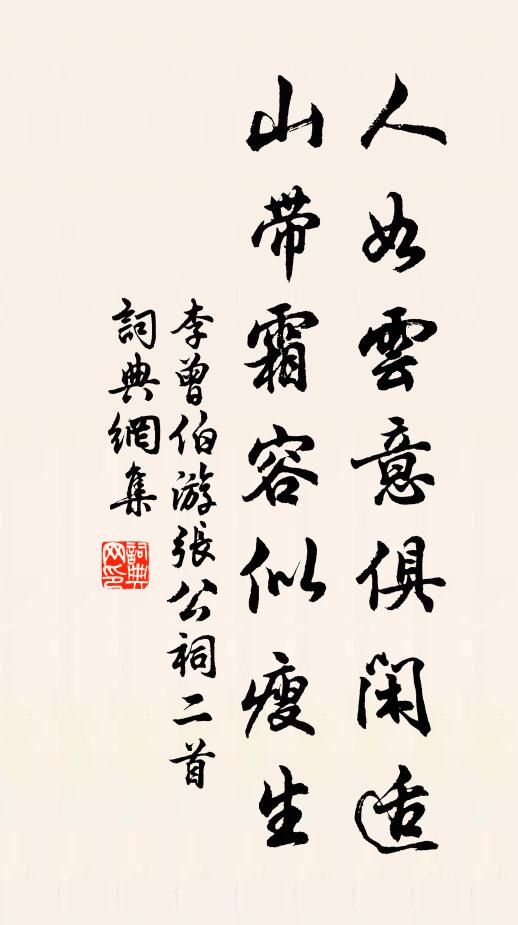 人如雲意俱閑适
山带霜容似瘦生
李曾伯游張公祠二首
詞典網集
詞典
网印